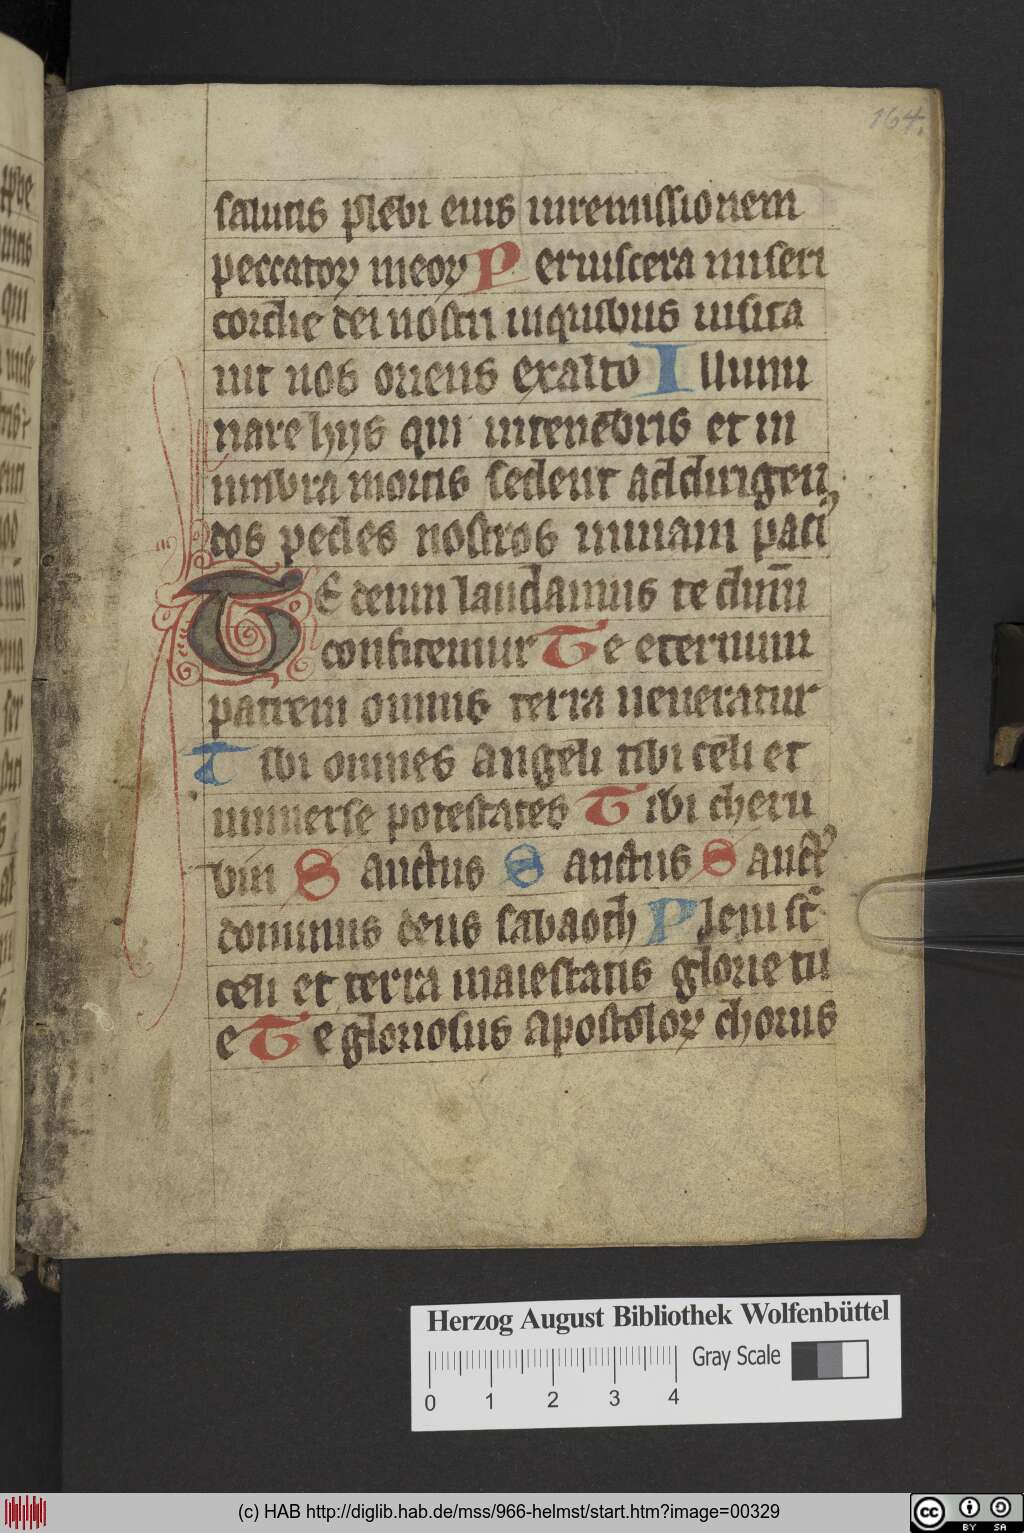 164.
salutis plebi eius inremissionem
peccatoꝝ meoꝝ Peruiscera miseri
cordie dei nostri inquibus uisita
uit nos oriens exalto Illumi
nare hijs qui intenebris et in
umbra mortis sedent addirigen
dos pedes nostros inuiam paciˢ
TE deum laudamus te dūm
confitemur Te eternum
patrem omnis terra ueneratur
Tibi omnes angeli tibi celi et
uniuerse potestates Tibi cheru
bin Sanctus Sanctus Sanctꝰ
dominus deus sabaoth Pleni st̄
celi et terra maiestatis glorie tu
e Te gloriosus apostoloꝝ chorus
Herzog August Bibliothek Wolfenbüttel
Gray Scale
0 1 2 3 4
(c) HAB http://diglib.hab.de/mss/966-helmst/start.htm?image=00329
cc BY SA